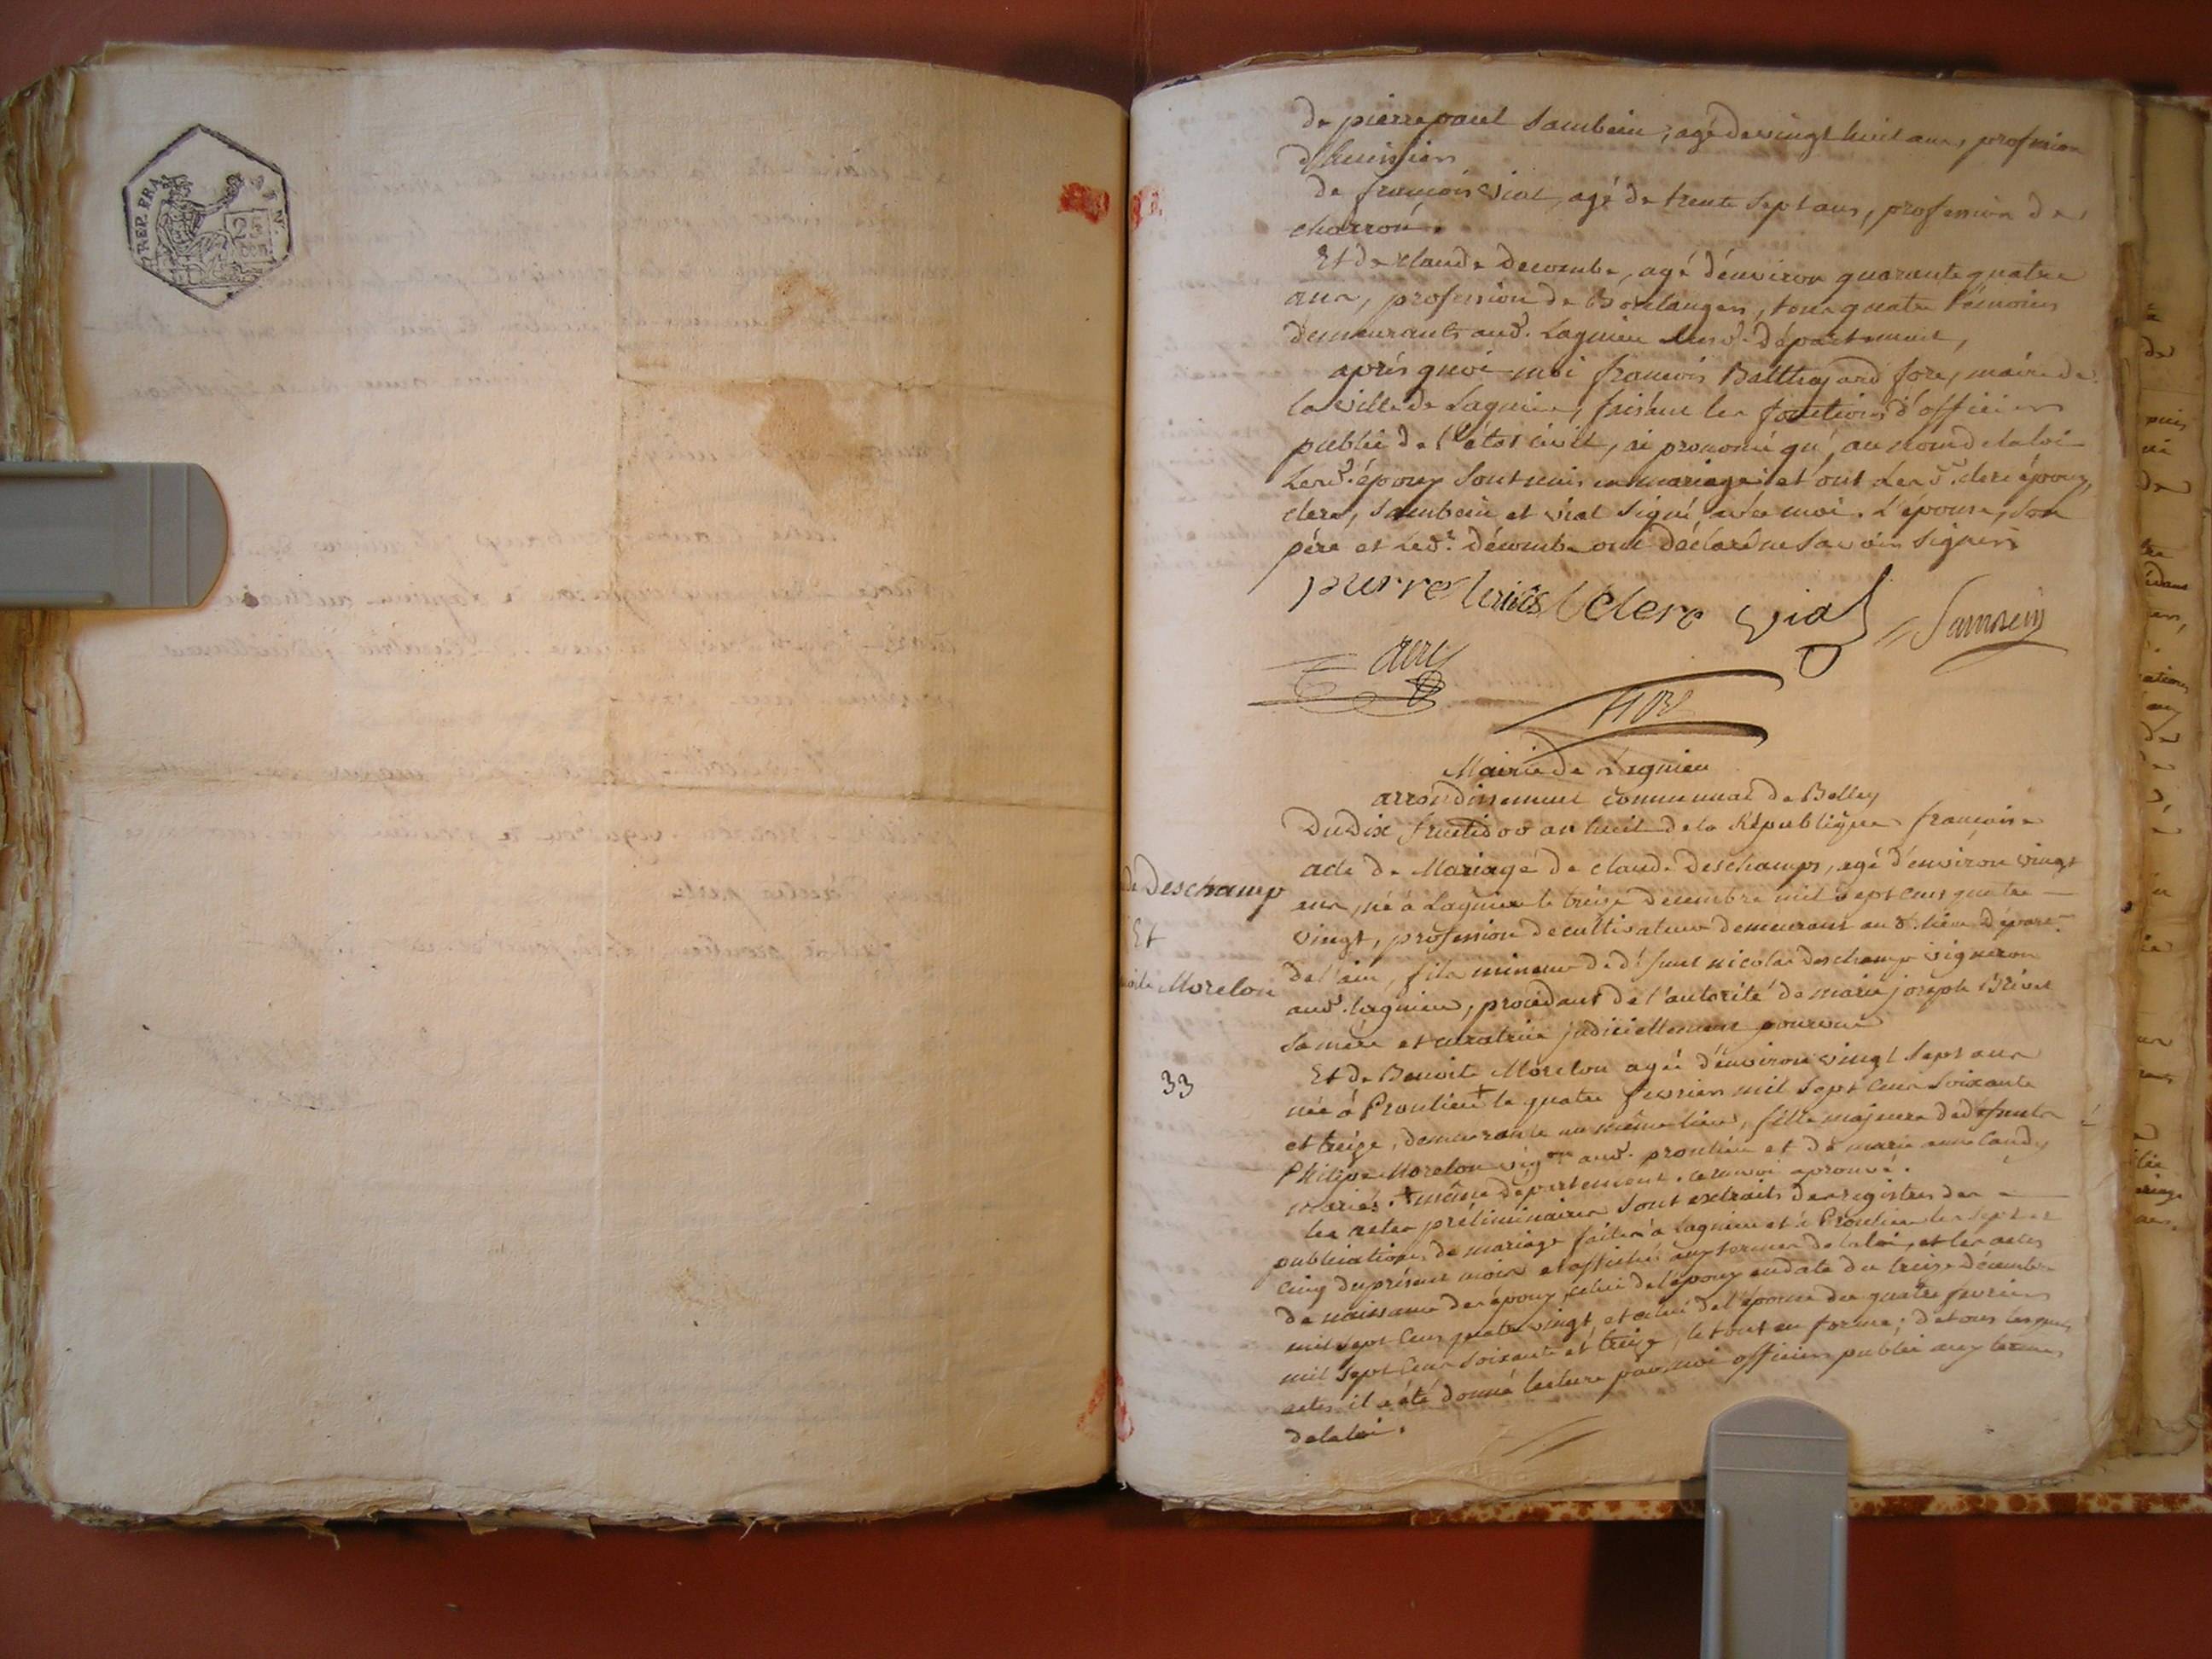 REP. FRA.
25
cen.
de pierre paul Sambein, agé de vingt huit ans, profession
d'huissier
de françois vial, agé de trente sept ans, profession de
charron.
Et de claude decombe, agé d'environ quarante quatre
ans, profession de Boulanger, tous quatre témoins
demeurants aud. Lagnieu susd. département,
aprés quoi moi françois Balthazard fore, maire de
la ville de Lagnieu, faisant les fonctions d'officier
public de l'état civil, ai prononcé qu'au nom de la loi
Lesd. époux sont unis en mariage et ont Lesd. clerc époux,
clerc, Sambein et vial signé avec moi. L'épouse, son
pére et led. décombe ont déclaré ne savoir signer
pierre louis leclerc vial Sambein
clerc
fore
Mairie de Lagnieu
arrondissement communal de Belley
Du Dix fructidor an huit de la République françoise
acte de Mariage de claude Deschamps, agé d'environ vingt
ans, né à Lagnieu le treize decembre mil sept cens quatre
vingt, profession de cultivateur demeurant aud. lieu départ.
de l'ain, fils mineur de défunt nicolas deschamp vigneron
aud. lagnieu, procédant de l'autorité de marie joseph Brivet
sa mére et curatrice judiciellement pourvue
Et de Benoite Morelon agée d'environ vingt sept ans
née à Proulieu + le quatre fevrier mil sept cens soixante
et treize, demeurante au même lieu, fille majeure de défunts
Philipe Morelon vigon aud. proulieu et de marie anne
mariés. + même département. ce renvoi aprouvé.
les actes préliminaires sont extraits des registres des
publications de mariage faites à Lagnieu et à Proulieu les sept et
cinq du présent mois et affichés aux termes de la loi, et les actes
de naissance des époux, celui de l'époux en date du treize décembre
mil sept cens quatre vingt, et celui de l'épouse du quatre fevrier
mil sept cens soixante et treize, le tout en forme; de tous lesquels
actes il a été donné lecture par moi officier public aux termes
de la loi.
de Deschamp
Et
Morelon
33